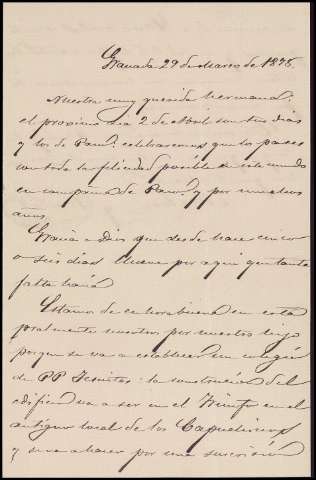 Granada 29 de Marzo de 1898.
Nuestra muy querida hermana:
el proximo dia 2 de Abril son tus dias
y los de Paco; celebraremos que los pases
con toda la felicidad posible en este mundo
en compaña de Paco y por muchos
años.
Gracias a Dios que desde hace cinco
o seis dias llueve por aqui que tanta
falta hacia
Estamos de enhorabuena en esta
por nuestro hijo
porque se va a establecer un colegio
de PP Jesuitas: la construccion del
edificio va a ser en el Triunfo en el
antiguo local de los Capuchinos
y se va a hacer por una suscricion